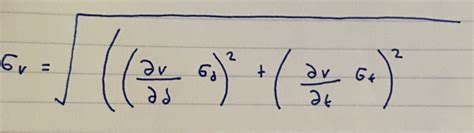 σᵥ = √( ( (∂v/∂d) σ_d )² + ( (∂v/∂t) σ_t )²